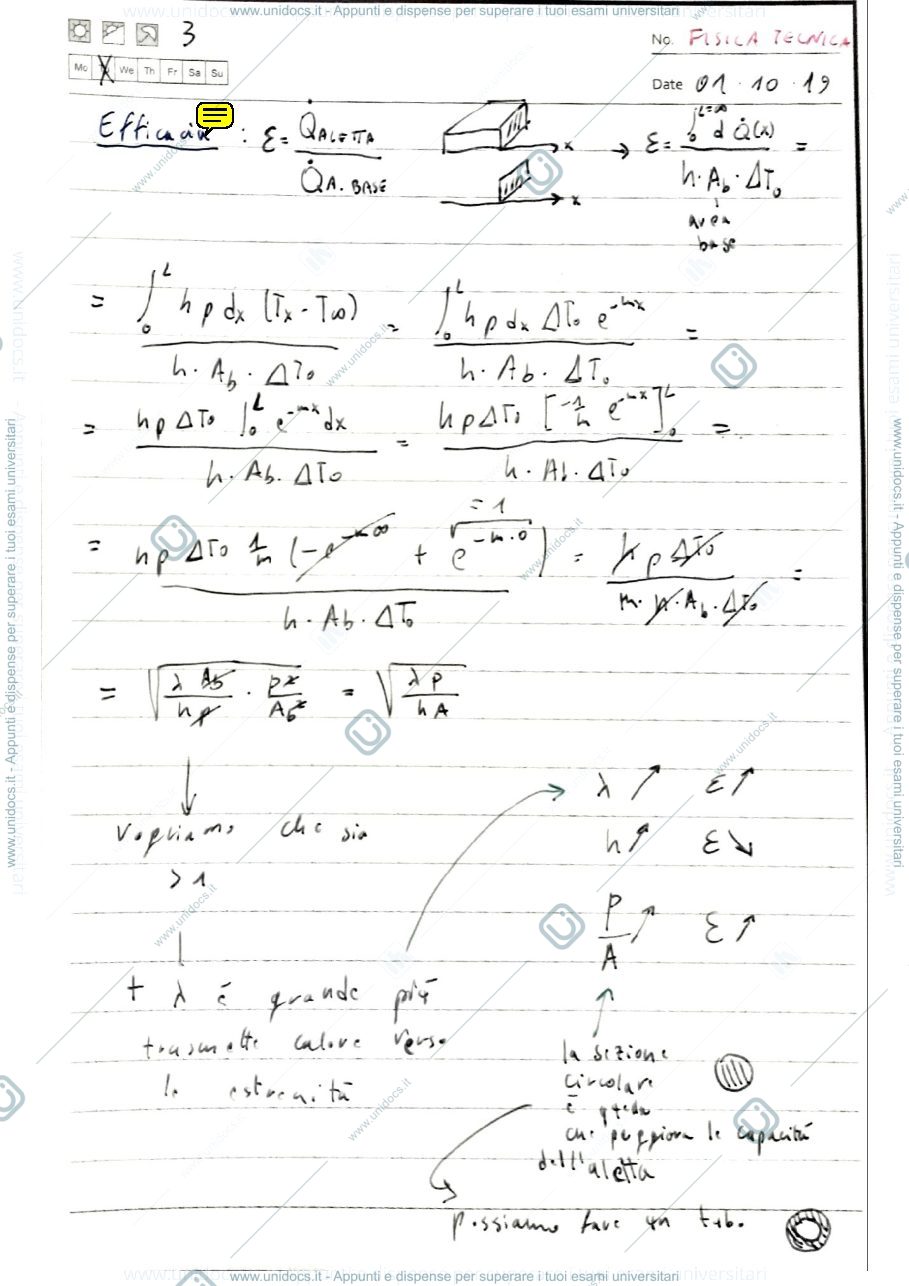 www.unidocs.it - Appunti e dispense per superare i tuoi esami universitari
3
No. FISICA TECNICA
Mo Tu We Th Fr Sa Su
Date 01 · 10 · 19
Efficacia : ε = Q̇ALETTA / Q̇A. BASE x x → ε = ∫₀^(L=∞) d Q̇(x) / h · Ab · ΔT₀ =
area
base
= ∫₀^L h p dx (Tx - T∞) / h · Ab · ΔT₀ = ∫₀^L h p dx ΔT₀ e^(-mx) / h · Ab · ΔT₀ =
= h p ΔT₀ ∫₀^L e^(-mx) dx / h · Ab · ΔT₀ = h p ΔT₀ [-1/m e^(-mx)]₀^L / h · Ab · ΔT₀ =
= 1
= h p ΔT₀ 1/m (-e^(-m∞) + e^(-m·0)) / h · Ab · ΔT₀ = h p ΔT₀ / m · h · Ab · ΔT₀ =
= √(λ Ab / h p · p² / Ab²) = √(λ p / h A)
λ ↗ ε ↗
Vogliamo che sia
h ↗ ε ↘
> 1
P / A ↗ ε ↗
+ λ è grande più
trasmette calore verso
le estremità
la sezione
circolare
è quella
che peggiora le capacità
dell'aletta
possiamo fare un tubo
www.unidocs.it - Appunti e dispense per superare i tuoi esami universitari